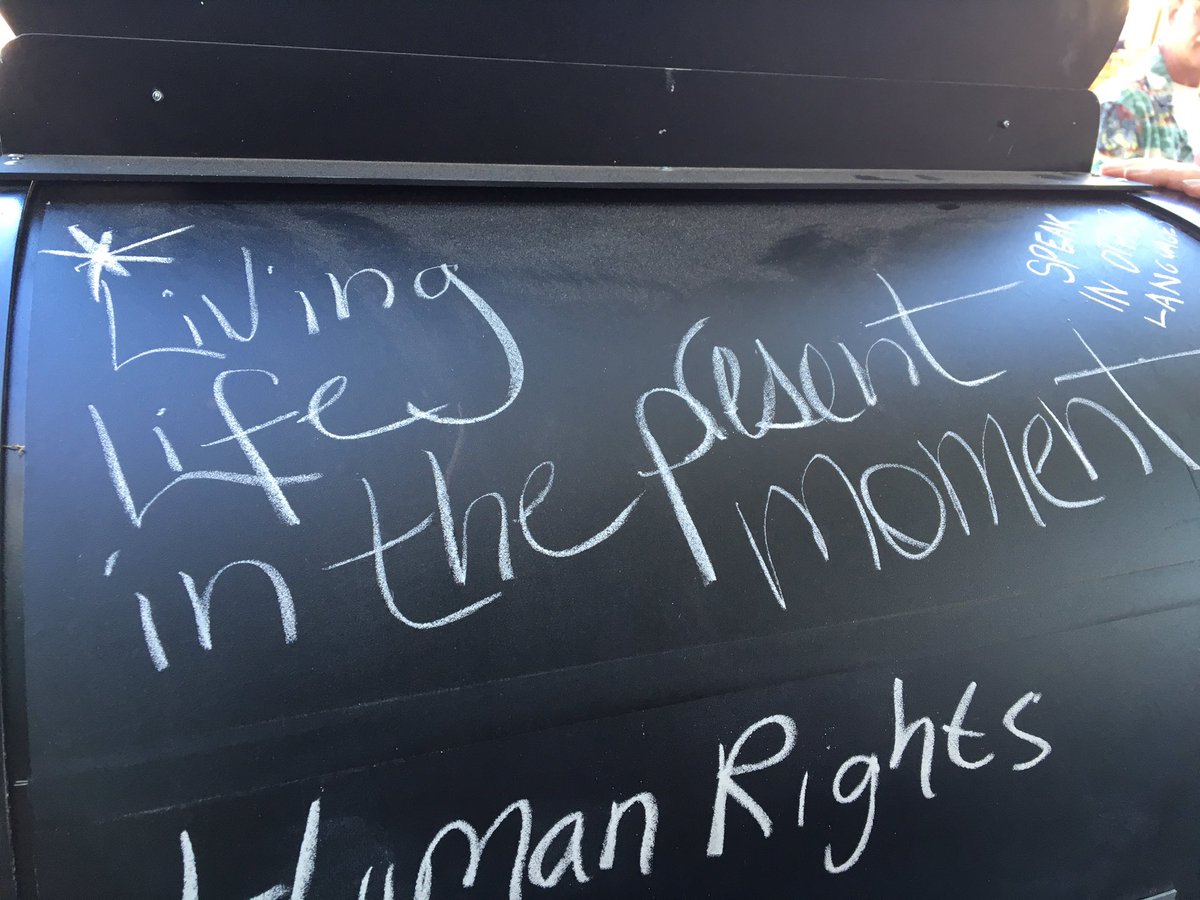 Living
Life
in the present
moment
SPEAK
IN
LANGUAGE
Human Rights